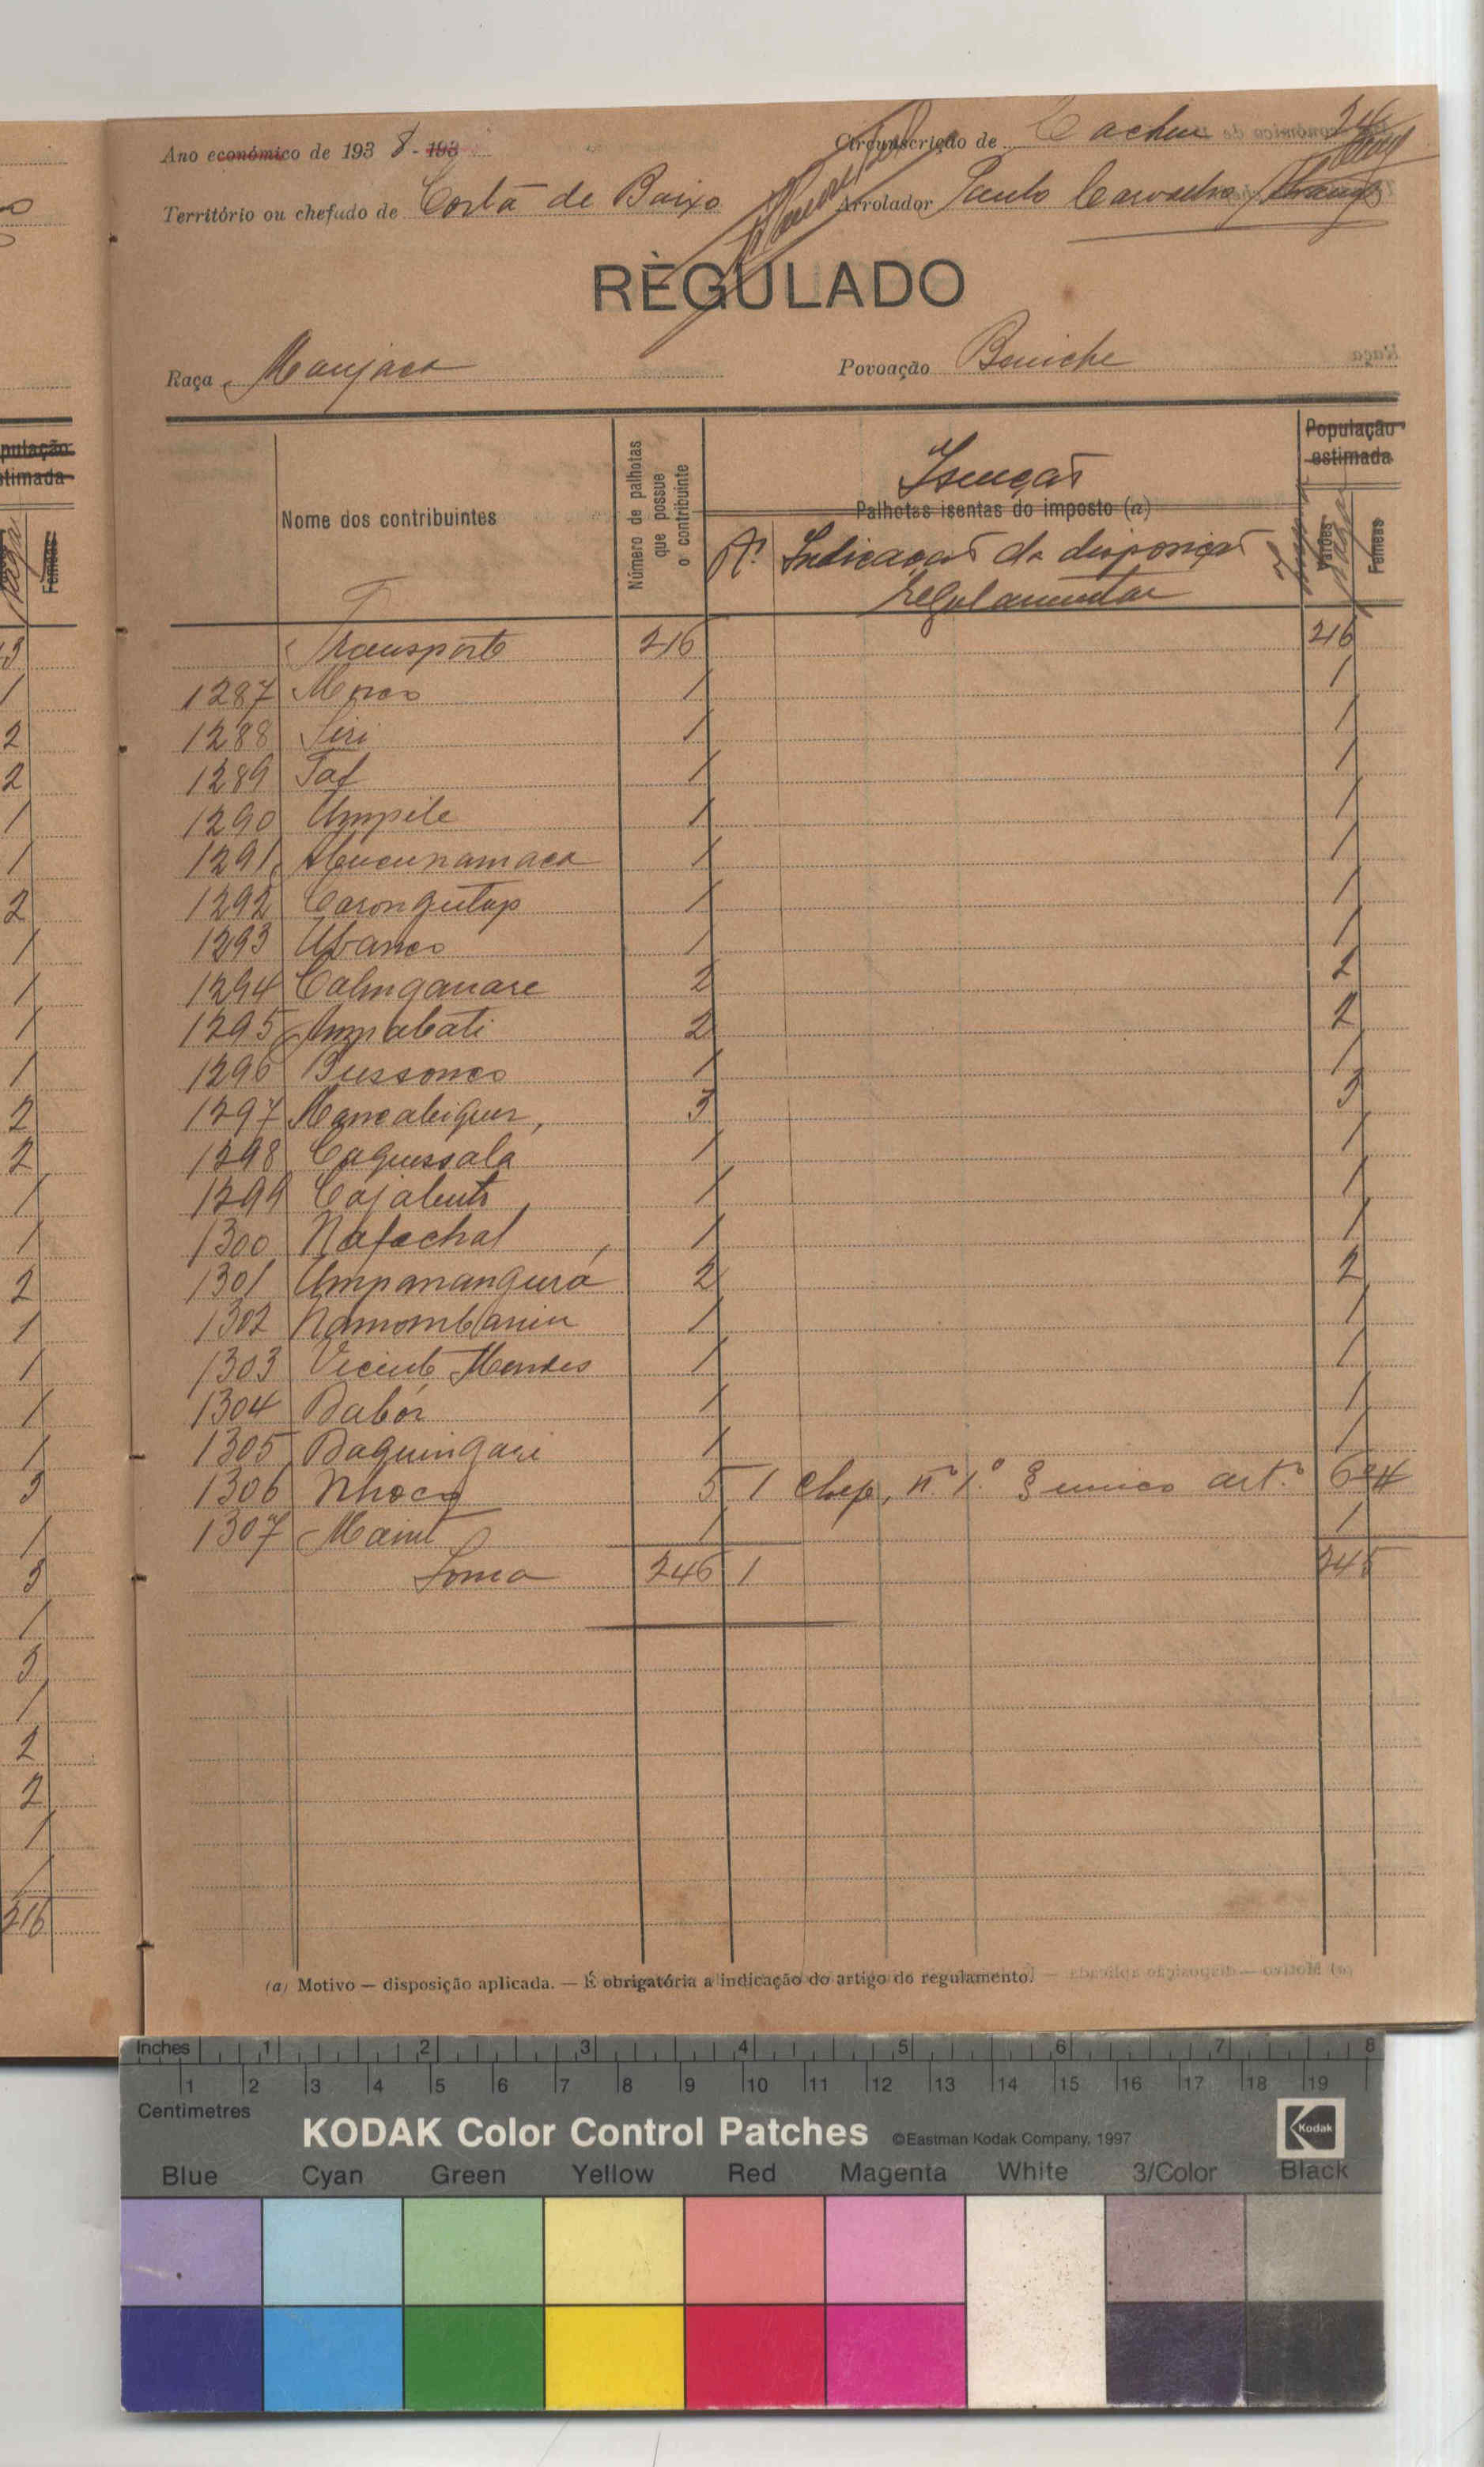 Ano económico de 193 8 - 193
Circunscrição de Cacheu
Território ou chefado de Costa de Baixo
Arrolador Paulo Carvalho
REGULADO
Raça Manjaca
Povoação Beniche
Nome dos contribuintes
Número de palhotas que possue o contribuinte
Isenção
Palhotas isentas do imposto (a)
Nº Indicação da disposição
regulamentar
População estimada
Varões
Fêmeas
Transporte 216 216
1287 1 1
1288 Siri 1 1
1289 Taf 1 1
1290 Umpile 1 1
1291 1 1
1292 Carongutap 1 1
1293 Ubanco 1 1
1294 2 2
1295 2 2
1296 Bussonco 1 1
1297 3 3
1298 Caquessala 1 1
1299 1 1
1300 Nafachal 1 1
1301 2 2
1302 1 1
1303 Vicente Mendes 1 1
1304 Babór 1 1
1305 Baguingari 1 1
1306 Nhoca 5 1 Chefe, nº 1º § unico art.º 6 4
1307 1 1
Soma 246 1 245
(a) Motivo — disposição aplicada. — É obrigatória a indicação do artigo do regulamento.
pulação
timada
Fêmeas
3
1
2
2
1
1
2
1
1
1
1
2
2
1
1
2
1
1
1
1
3
1
3
1
3
1
2
2
1
1
216
Inches 1 2 3 4 5 6 7 8
1 2 3 4 5 6 7 8 9 10 11 12 13 14 15 16 17 18 19
Centimetres
KODAK Color Control Patches ©Eastman Kodak Company, 1997 Kodak
Blue Cyan Green Yellow Red Magenta White 3/Color Black